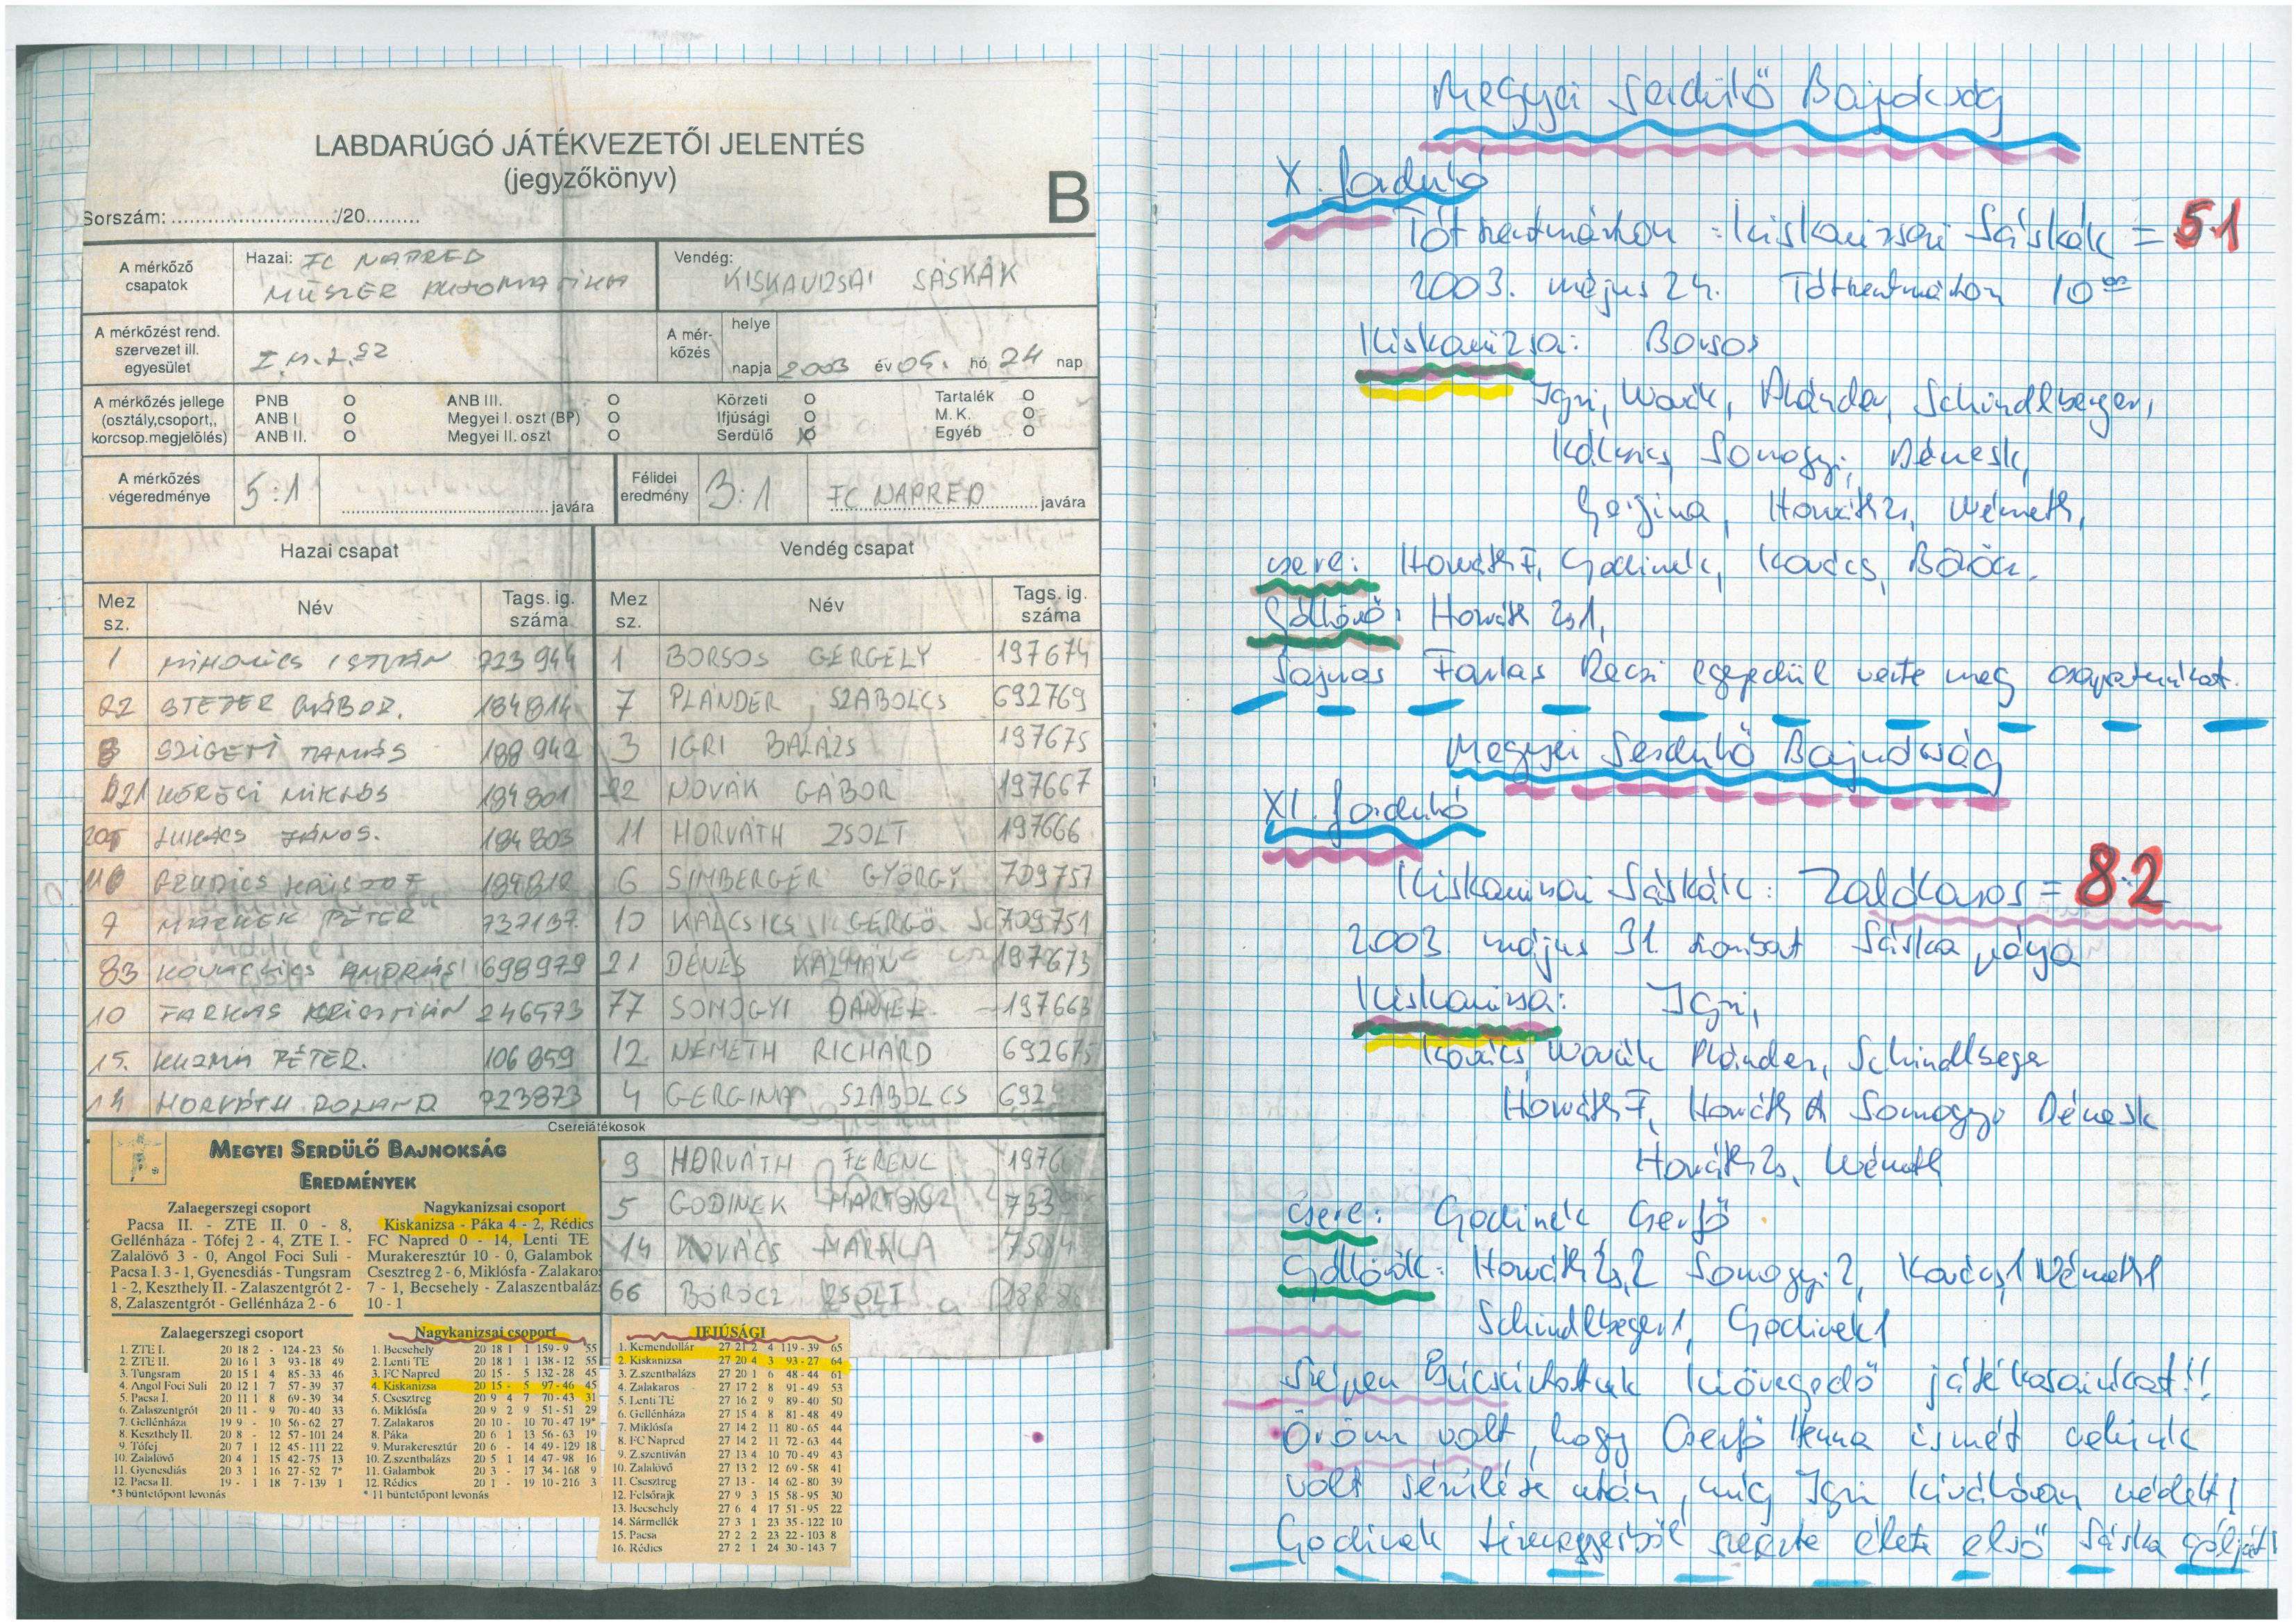 LABDARÚGÓ JÁTÉKVEZETŐI JELENTÉS
(jegyzőkönyv)
B
Sorszám: ............................:/20.........
A mérkőző csapatok
Hazai: FC NAPRED
MŰSZER AUTOMATIKA
Vendég:
KISKANIZSAI SÁSKÁK
A mérkőzést rend. szervezet ill. egyesület
A mérkőzés
helye
napja 2003 év 05. hó 24 nap
A mérkőzés jellege (osztály,csoport,, korcsop.megjelölés)
PNB O ANB III. O Körzeti O Tartalék O
ANB I O Megyei I. oszt (BP) O Ifjúsági O M. K. O
ANB II. O Megyei II. oszt O Serdülő O Egyéb O
A mérkőzés végeredménye 5:1 javára
Félidei eredmény 3:1 FC NAPRED javára
Hazai csapat Vendég csapat
Mez sz. Név Tags. ig. száma Mez sz. Név Tags. ig. száma
1 MIHOVICS ISTVÁN 723944 1 BORSOS GERGELY 197674
22 STEFER GÁBOR. 184814 7 PLÁNDER SZABOLCS 692769
8 SZIGETI TAMÁS 188942 3 IGRI BALÁZS 197675
KŐRÖSI MIKLÓS 184801 22 NOVÁK GÁBOR 197667
LUKÁCS JÁNOS. 184803 11 HORVÁTH ZSOLT 197666
184812 6 SIMBERGER GYÖRGY 709757
7 PÉTER 737137 10 KÁLCSICS GERGŐ 709751
83 KOVACSICS ANDRÁS 698979 21 DÉNES KÁLMÁN 197673
10 FARKAS KRISZTIÁN 246573 77 SOMOGYI DÁNIEL 197663
15. KUZMA PÉTER. 106859 12 NÉMETH RICHÁRD 692675
14 HORVÁTH ROLAND 723873 4 GERGINA SZABOLCS 692
Cserejátékosok
9 HORVÁTH FERENC 1976
5 GODINEK MÁRTON 733
14 KOVÁCS
66 BÖRÖCZ ZSOLT
MEGYEI SERDÜLŐ BAJNOKSÁG
EREDMÉNYEK
Zalaegerszegi csoport
Pacsa II. - ZTE II. 0 - 8,
Gellénháza - Tófej 2 - 4, ZTE I. -
Zalalövő 3 - 0, Angol Foci Suli -
Pacsa I. 3 - 1, Gyenesdiás - Tungsram
1 - 2, Keszthely II. - Zalaszentgrót 2 -
8, Zalaszentgrót - Gellénháza 2 - 6
Nagykanizsai csoport
Kiskanizsa - Páka 4 - 2, Rédics
FC Napred 0 - 14, Lenti TE
Murakeresztúr 10 - 0, Galambok
Csesztreg 2 - 6, Miklósfa - Zalakaros
7 - 1, Becsehely - Zalaszentbalázs
10 - 1
Zalaegerszegi csoport
1. ZTE I. 20 18 2 - 124 - 23 56
2. ZTE II. 20 16 1 3 93 - 18 49
3. Tungsram 20 15 1 4 85 - 33 46
4. Angol Foci Suli 20 12 1 7 57 - 39 37
5. Pacsa I. 20 11 1 8 69 - 39 34
6. Zalaszentgrót 20 11 - 9 70 - 40 33
7. Gellénháza 19 9 - 10 56 - 62 27
8. Keszthely II. 20 8 - 12 57 - 101 24
9. Tófej 20 7 1 12 45 - 111 22
10. Zalalövő 20 4 1 15 42 - 75 13
11. Gyenesdiás 20 3 1 16 27 - 52 7*
12. Pacsa II. 19 - 1 18 7 - 139 1
*3 büntetőpont levonás
Nagykanizsai csoport
1. Becsehely 20 18 1 1 159 - 9 55
2. Lenti TE 20 18 1 1 138 - 12 55
3. FC Napred 20 15 - 5 132 - 28 45
4. Kiskanizsa 20 15 - 5 97 - 46 45
5. Csesztreg 20 9 4 7 70 - 43 31
6. Miklósfa 20 9 2 9 51 - 51 29
7. Zalakaros 20 10 - 10 70 - 47 19*
8. Páka 20 6 1 13 56 - 63 19
9. Murakeresztúr 20 6 - 14 49 - 129 18
10. Z.szentbalázs 20 5 1 14 47 - 98 16
11. Galambok 20 3 - 17 34 - 168 9
12. Rédics 20 1 - 19 10 - 216 3
* 11 büntetőpont levonás
IFJÚSÁGI
1. Kemendollár 27 21 2 4 119 - 39 65
2. Kiskanizsa 27 20 4 3 93 - 27 64
3. Z.szentbalázs 27 20 1 6 48 - 44 61
4. Zalakaros 27 17 2 8 91 - 49 53
5. Lenti TE 27 16 2 9 89 - 40 50
6. Gellénháza 27 15 4 8 81 - 48 49
7. Miklósfa 27 14 2 11 80 - 65 44
8. FC Napred 27 14 2 11 72 - 63 44
9. Z.szentiván 27 13 4 10 70 - 49 43
10. Zalalövő 27 13 2 12 69 - 58 41
11. Csesztreg 27 13 - 14 62 - 80 39
12. Felsőrajk 27 9 3 15 58 - 95 30
13. Becsehely 27 6 4 17 51 - 95 22
14. Sármellék 27 3 1 23 35 - 122 10
15. Pacsa 27 2 2 23 22 - 103 8
16. Rédics 27 2 1 24 30 - 143 7
Megyei Serdülő Bajnokság
X. forduló
Tótszentmárton : Kiskanizsai Sáskák = 5:1
2003. május 24. Tótszentmárton 10 00
Kiskanizsa: Borsos
Igri, Novák, Plánder, Schindlberger,
Kálcsics, Somogyi, Dénesk,
Gergina, Horváth Zs, Németh,
csere: Horváth F, Godinek, Kovács, Böröcz.
Góllövő: Horváth Zs 1,
Sajnos Farkas Krisz egyedül verte meg csapatunkat.
Megyei Serdülő Bajnokság
XI. forduló
Kiskanizsai Sáskák : Zalakaros = 8:2
2003. május 31. szombat Sáska pálya
Kiskanizsa: Igri,
Kovács, Novák Plánder, Schindlberger
Horváth F, Horváth A Somogyi Dénesk
Horváth Zs, Németh
Csere: Godinek, Cserfő
Góllövők: Horváth Zs, 2 Somogyi 2, Kovács 1 Németh 1
Schindlberger 1, Godinek 1
Szépen búcsúztatuk kiöregedő játékosainkat!!
Öröm volt, hogy Cserfő ismét velünk
volt sérülése után, míg Igri kiválóan védett!
Godinek tizenegyesből szerezte élete első Sáska gólját!